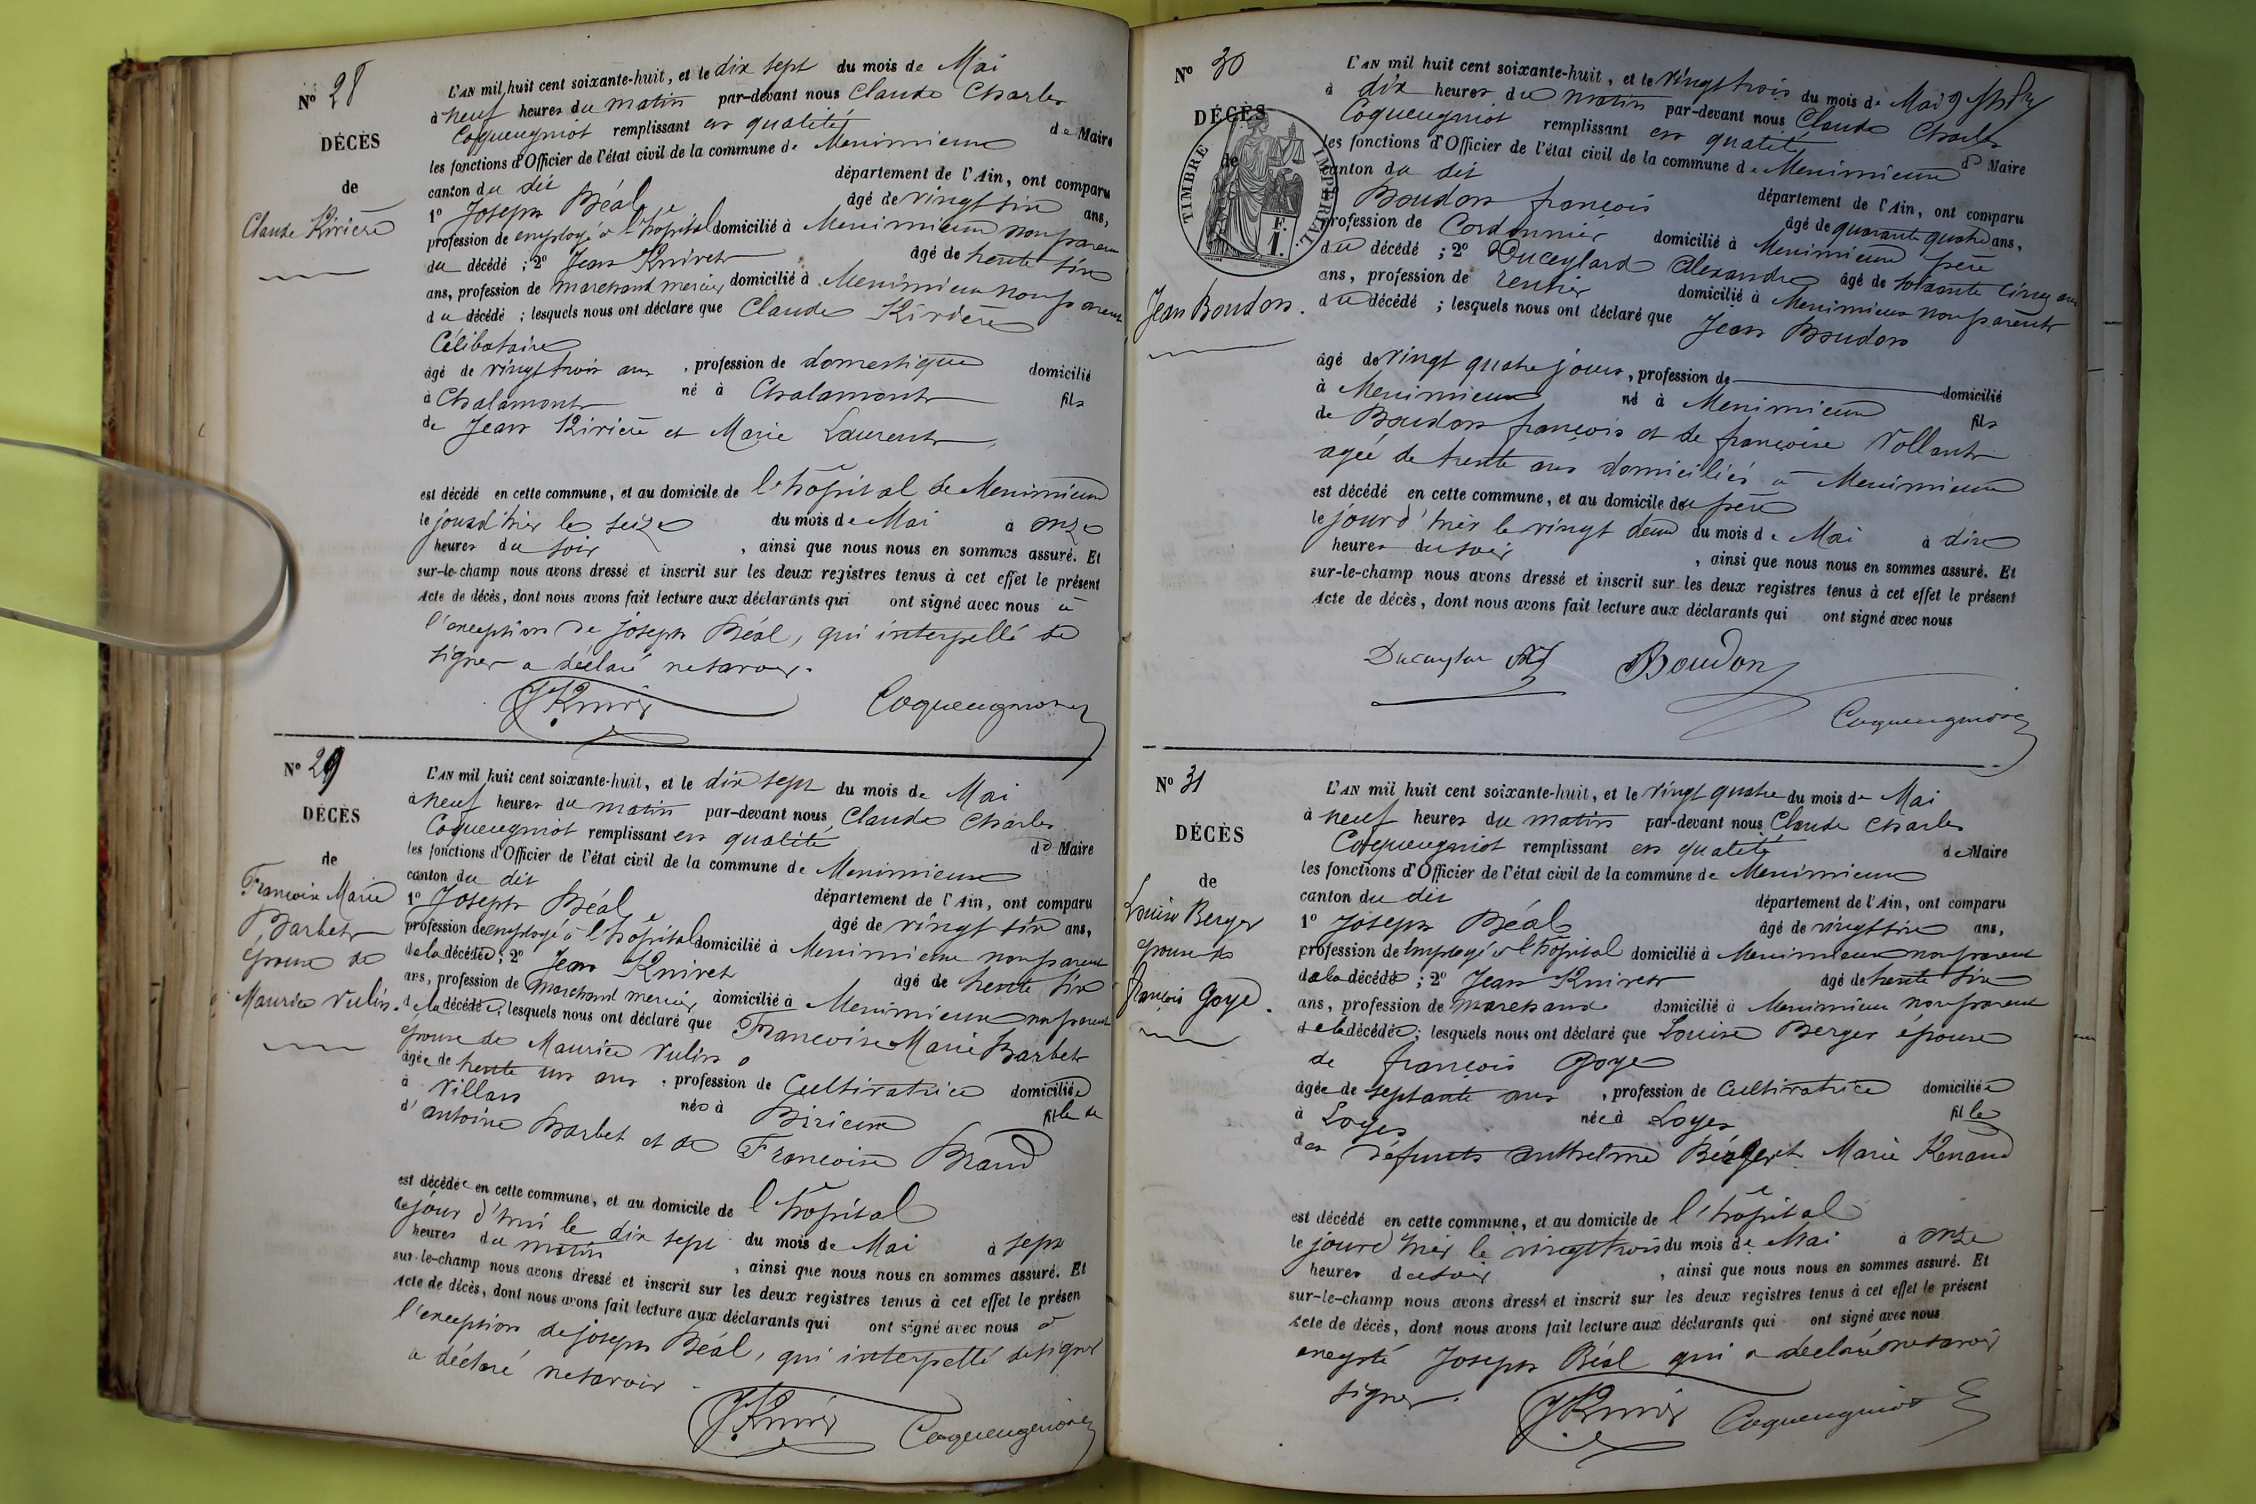 N° 28
DÉCÈS
de
Claude Rivière
L'AN mil huit cent soixante-huit, et le dix sept du mois de Mai
à neuf heures du matin par-devant nous Claude Charles
Coqueugniot remplissant en qualité de Maire
les fonctions d'Officier de l'état civil de la commune de Meximieux
canton du dit département de l'Ain, ont comparu
1° Joseph Béal âgé de vingt six ans,
profession de employé à l'hôpital domicilié à Meximieux non parent
du décédé ; 2° Jean Knivet âgé de trente six
ans, profession de marchand mercier domicilié à Meximieux non parent
du décédé ; lesquels nous ont déclaré que Claude Rivière
Célibataire
âgé de vingt trois ans , profession de domestique domicilié
à Chalamont né à Chalamont fils
de Jean Rivière et Marie Laurent
est décédé en cette commune, et au domicile de l'hôpital de Meximieux
le jour d'hier le seize du mois de Mai à onze
heures du soir , ainsi que nous nous en sommes assuré. Et
sur-le-champ nous avons dressé et inscrit sur les deux registres tenus à cet effet le présent
Acte de décès, dont nous avons fait lecture aux déclarants qui ont signé avec nous à
l'exception de Joseph Béal, qui interpellé de
signer a déclaré ne savoir.
Coqueugniot
N° 29
DÉCÈS
de
Françoise Marie
Barbet
épouse de
Maurice Vulin.
L'AN mil huit cent soixante-huit, et le dix sept du mois de Mai
à neuf heures du matin par-devant nous Claude Charles
Coqueugniot remplissant en qualité de Maire
les fonctions d'Officier de l'état civil de la commune de Meximieux
canton du dit département de l'Ain, ont comparu
1° Joseph Béal âgé de vingt six ans,
profession de employé à l'hôpital domicilié à Meximieux non parent
de la décédée ; 2° Jean Knivet âgé de trente six
ans, profession de marchand mercier domicilié à Meximieux non parent
de la décédée ; lesquels nous ont déclaré que Françoise Marie Barbet
épouse de Maurice Vulin
âgée de trente un ans , profession de Cultivatrice domiciliée
à Villars née à Birieux fille de
d'antoine Barbet et de Françoise Brand
est décédée en cette commune, et au domicile de l'hôpital
le jour d'hui le dix sept du mois de Mai à sept
heures du matin , ainsi que nous nous en sommes assuré. Et
sur-le-champ nous avons dressé et inscrit sur les deux registres tenus à cet effet le présen
Acte de décès, dont nous avons fait lecture aux déclarants qui ont signé avec nous à
l'exception de joseph Béal, qui interpellé de signer
a déclaré ne savoir.
Coqueugniot
N° 30
DÉCÈS
de
TIMBRE IMPÉRIAL.
F.
1.
Jean Boudon.
L'AN mil huit cent soixante-huit, et le vingt trois du mois de Mai
à dix heures du matin par-devant nous Claude Charles
Coqueugniot remplissant en qualité de Maire
les fonctions d'Officier de l'état civil de la commune de Meximieux
canton du dit département de l'Ain, ont comparu
Boudon françois âgé de quarante quatre ans,
profession de Cordonnier domicilié à Meximieux père
du décédé ; 2° Ducaylard Alexandre âgé de soixante cinq ans
ans, profession de rentier domicilié à Meximieux non parent
du décédé ; lesquels nous ont déclaré que Jean Boudon
âgé de vingt quatre jours , profession de domicilié
à Meximieux né à Meximieux fils
de Boudon françois et de françoise Vollant
agée de trente ans domiciliés à Meximieux
est décédé en cette commune, et au domicile du père
le jour d'hier le vingt deux du mois de Mai à dix
heures du soir , ainsi que nous nous en sommes assuré. Et
sur-le-champ nous avons dressé et inscrit sur les deux registres tenus à cet effet le présent
Acte de décès, dont nous avons fait lecture aux déclarants qui ont signé avec nous
Boudon
Coqueugniot
N° 31
DÉCÈS
de
Louise Berger
épouse de
françois Goye.
L'AN mil huit cent soixante-huit, et le vingt quatre du mois de Mai
à neuf heures du matin par-devant nous Claude Charles
Coqueugniot remplissant en qualité de Maire
les fonctions d'Officier de l'état civil de la commune de Meximieux
canton du dit département de l'Ain, ont comparu
1° Joseph Béal âgé de vingt six ans,
profession de employé à l'hôpital domicilié à Meximieux non parent
de la décédé ; 2° Jean Knivet âgé de trente six
ans, profession de marchand domicilié à Meximieux non parent
de la décédée ; lesquels nous ont déclaré que Louise Berger épouse
de françois Goye
âgée de septante ans , profession de Cultivatrice domiciliée
à Loyes née à Loyes fille
des défunts anthelme Berger et Marie Renaud
est décédé en cette commune, et au domicile de l'hôpital
le jour d'hier le vingt trois du mois de Mai à onze
heures du soir , ainsi que nous nous en sommes assuré. Et
sur-le-champ nous avons dressé et inscrit sur les deux registres tenus à cet effet le présent
Acte de décès, dont nous avons fait lecture aux déclarants qui ont signé avec nous
excepté Joseph Béal qui a déclaré ne savoir
signer.
Coqueugniot